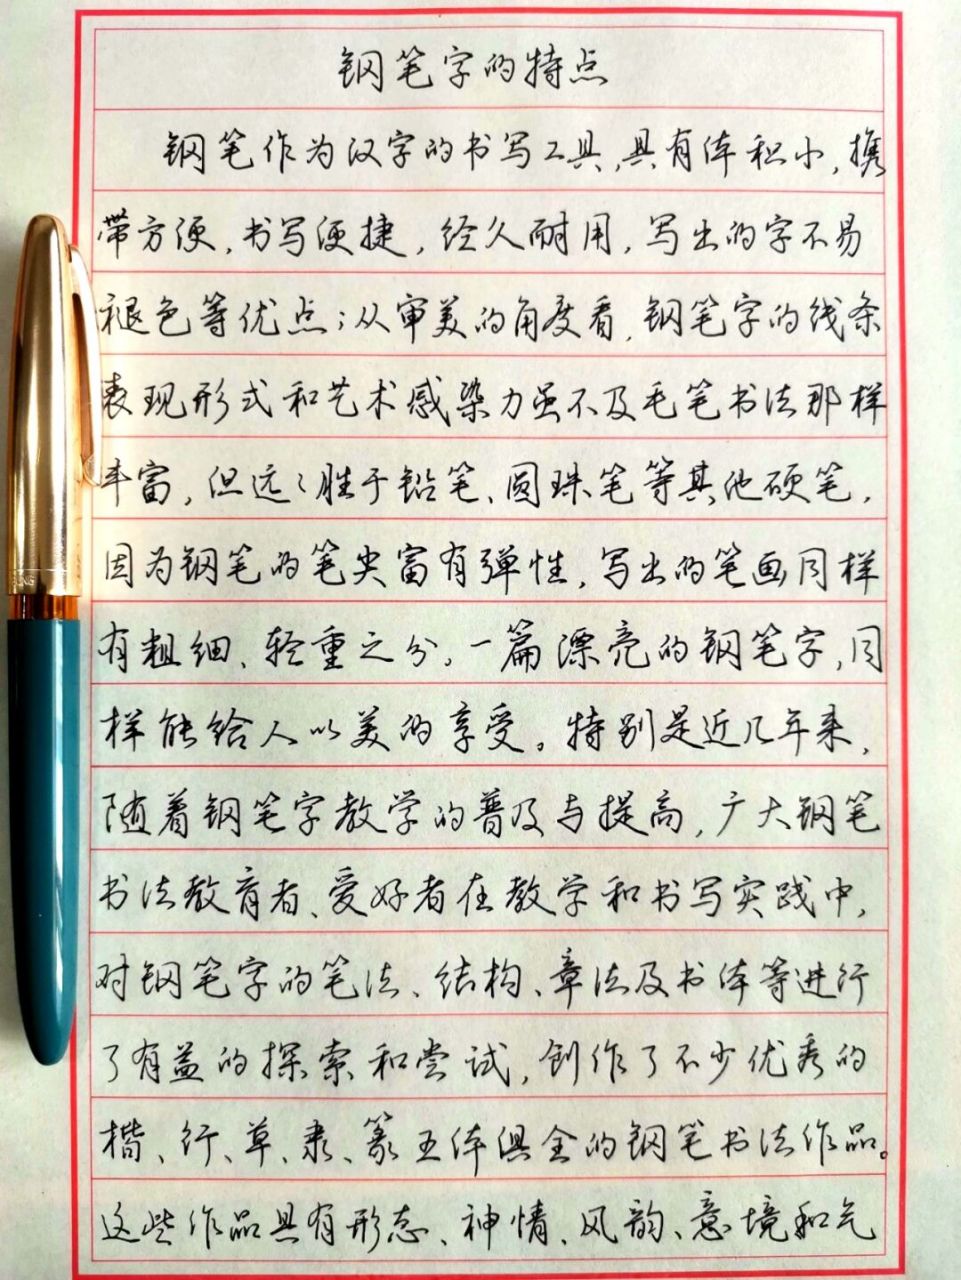 钢笔字的特点
钢笔作为汉字的书写工具,具有体积小,携
带方便,书写便捷,经久耐用,写出的字不易
褪色等优点;从审美的角度看,钢笔字的线条
表现形式和艺术感染力虽不及毛笔书法那样
丰富,但远远胜于铅笔、圆珠笔等其他硬笔,
因为钢笔的笔尖富有弹性,写出的笔画同样
有粗细、轻重之分,一篇漂亮的钢笔字,同
样能给人以美的享受。特别是近几年来,
随着钢笔字教学的普及与提高,广大钢笔
书法教育者、爱好者在教学和书写实践中,
对钢笔字的笔法、结构、章法及书体等进行
了有益的探索和尝试,创作了不少优秀的
楷、行、草、隶、篆五体俱全的钢笔书法作品。
这些作品具有形态、神情、风韵、意境和气